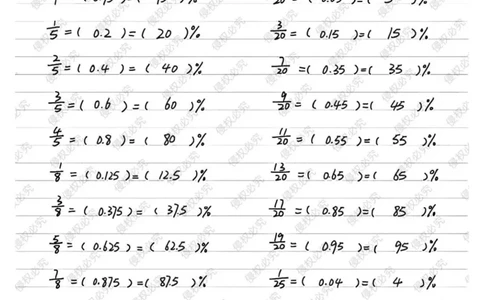 1/5 = ( 0.2 ) = ( 20 )%
3/20 = ( 0.15 ) = ( 15 )%
2/5 = ( 0.4 ) = ( 40 )%
7/20 = ( 0.35 ) = ( 35 )%
3/5 = ( 0.6 ) = ( 60 )%
9/20 = ( 0.45 ) = ( 45 )%
4/5 = ( 0.8 ) = ( 80 )%
11/20 = ( 0.55 ) = ( 55 )%
1/8 = ( 0.125 ) = ( 12.5 )%
13/20 = ( 0.65 ) = ( 65 )%
3/8 = ( 0.375 ) = ( 37.5 )%
17/20 = ( 0.85 ) = ( 85 )%
5/8 = ( 0.625 ) = ( 62.5 )%
19/20 = ( 0.95 ) = ( 95 )%
7/8 = ( 0.875 ) = ( 87.5 )%
1/25 = ( 0.04 ) = ( 4 )%
侵权必究